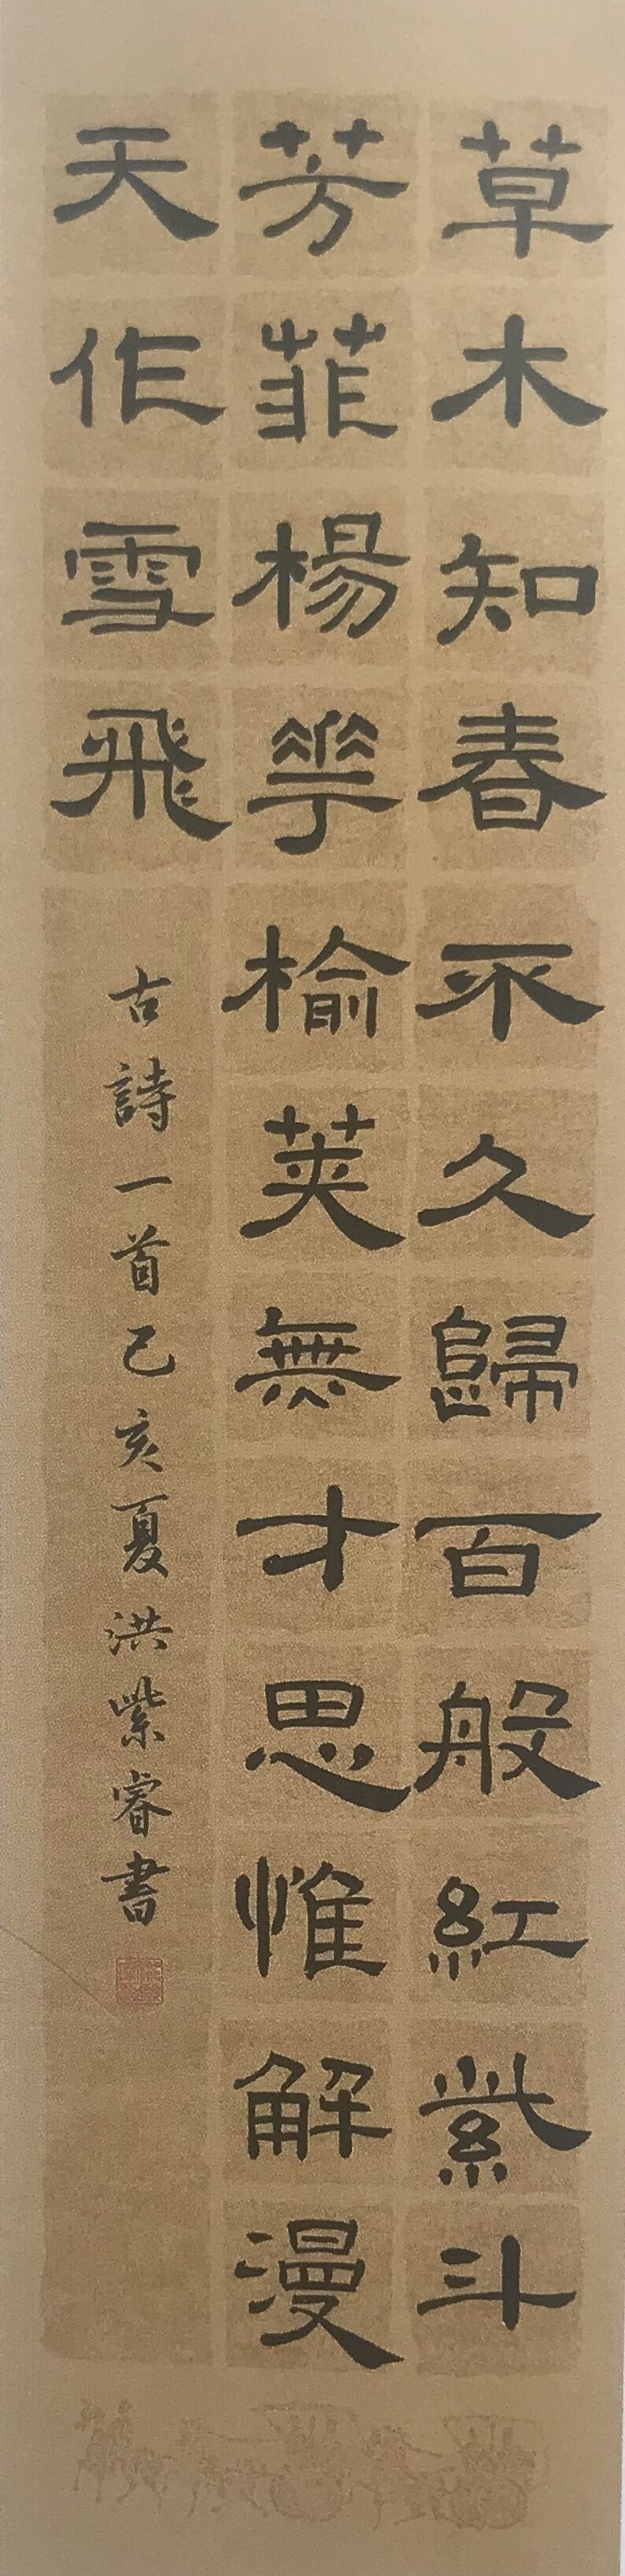 草木知春不久歸百般紅紫斗
芳菲楊花榆莢無才思惟解漫
天作雪飛
古詩一首己亥夏洪紫睿書